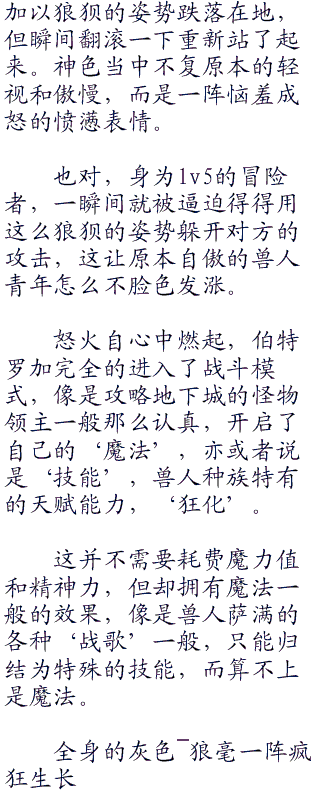 加以狼狈的姿势跌落在地，
但瞬间翻滚一下重新站了起
来。神色当中不复原本的轻
视和傲慢，而是一阵恼羞成
怒的愤懑表情。
也对，身为lv5的冒险
者，一瞬间就被逼迫得得用
这么狼狈的姿势躲开对方的
攻击，这让原本自傲的兽人
青年怎么不脸色发涨。
怒火自心中燃起，伯特
罗加完全的进入了战斗模
式，像是攻略地下城的怪物
领主一般那么认真，开启了
自己的‘魔法’，亦或者说
是‘技能’，兽人种族特有
的天赋能力，‘狂化’。
这并不需要耗费魔力值
和精神力，但却拥有魔法一
般的效果，像是兽人萨满的
各种‘战歌’一般，只能归
结为特殊的技能，而算不上
是魔法。
全身的灰色¯狼毫一阵疯
狂生长